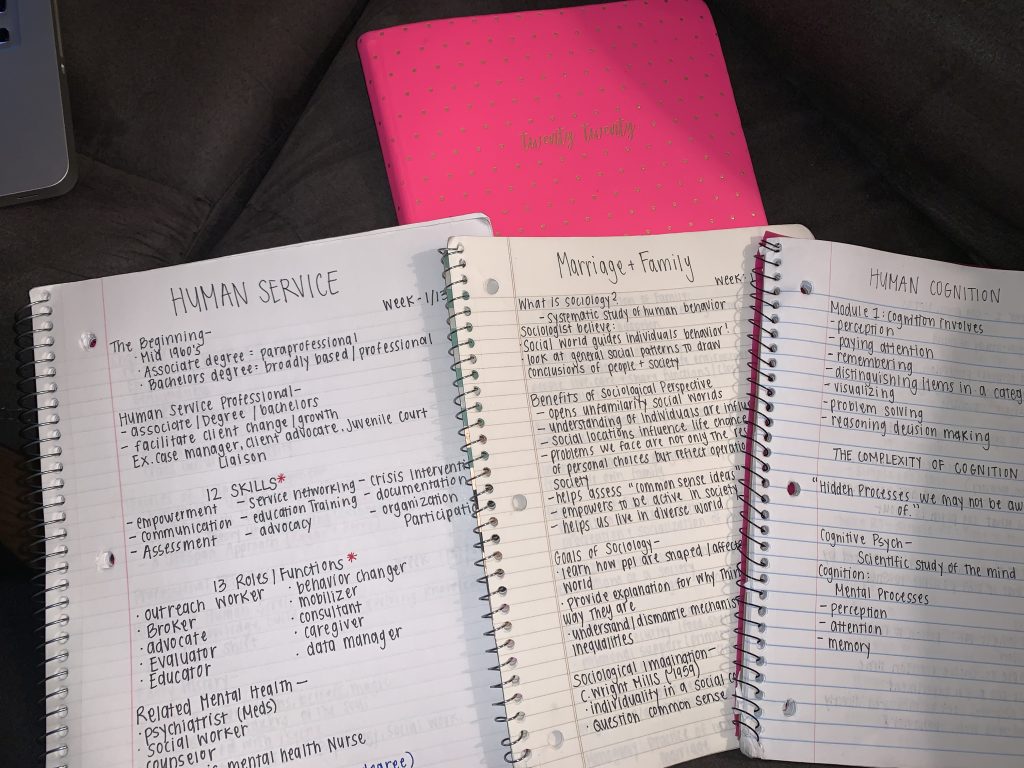 twenty twenty
HUMAN SERVICE
Week - 1/13
The Beginning-
· Mid 1960's
· Associate degree = paraprofessional
· Bachelors degree = broadly based / professional
Human Service Professional-
- associate / Degree / bachelors
- facilitate client change / growth
Ex. case manager, client advocate, Juvenile court
Liaison
12 SKILLS*
- empowerment - service networking - crisis
- communication - education Training - documentation
- Assessment - advocacy - organization
13 Roles / Functions *
· outreach worker · behavior changer
· Broker · mobilizer
· advocate · consultant
· Evaluator · caregiver
· Educator · data manager
Related Mental Health -
· psychiatrist (Meds)
· Social Worker
counselor
mental health Nurse
degree)
Marriage + Family
Week:
What is sociology?
- Systematic study of human behavior
Sociologist believe:
Social World guides individuals behavior!
look at general social patterns to draw
conclusions of people + society
Benefits of Sociological Perspective
- opens unfamiliarity social worlds
- understanding of individuals are
- social locations influence life
- problems we face are not only the
of personal choices but reflect
society
- helps assess "common sense ideas"
- empowers to be active in society
- helps us live in diverse world
Goals of Sociology-
· learn how ppl are shaped /
world
· Provide explanation for why
way They are
· understand / dismantle
inequalities
Sociological Imagination-
C. Wright Mills (1959)
· individuality in a social
· Question common sense
HUMAN COGNITION
Module 1: Cognition involves
- perception
- paying attention
- remembering
- distinguishing items in a
- visualizing
- problem solving
- reasoning decision making
THE COMPLEXITY OF COGNITION
"Hidden Processes we may not be
of."
Cognitive Psych-
Scientific study of the mind
Cognition:
Mental Processes
- perception
- attention
- memory